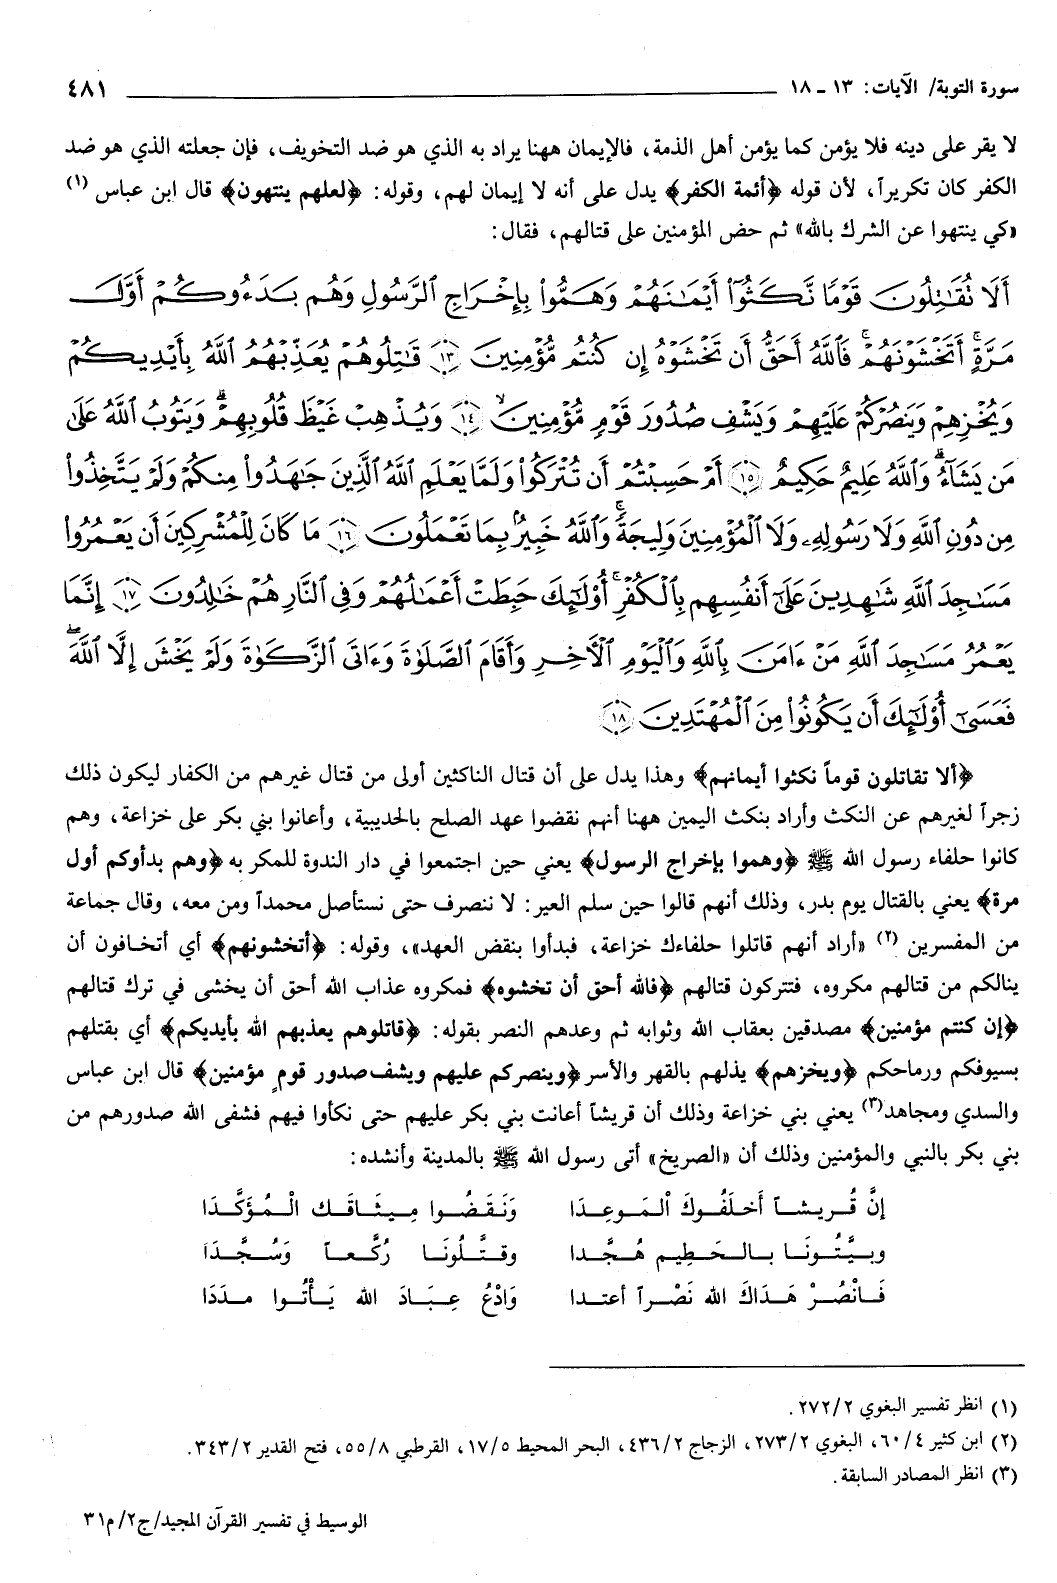 سورة التوبة/ الآيات: ١٣ - ١٨ ٤٨١
لا يقر على دينه فلا يؤمن كما يؤمن أهل الذمة، فالإيمان ههنا يراد به الذي هو ضد التخويف، فإن جعلته الذي هو ضد
الكفر كان تكريراً، لأن قوله ﴿أئمة الكفر﴾ يدل على أنه لا إيمان لهم، وقوله: ﴿لعلهم ينتهون﴾ قال ابن عباس (١)
«كي ينتهوا عن الشرك بالله» ثم حض المؤمنين على قتالهم، فقال:
أَلَا تُقَٰتِلُونَ قَوْمًا نَّكَثُوٓا۟ أَيْمَٰنَهُمْ وَهَمُّوا۟ بِإِخْرَاجِ ٱلرَّسُولِ وَهُم بَدَءُوكُمْ أَوَّلَ
مَرَّةٍ ۚ أَتَخْشَوْنَهُمْ ۚ فَٱللَّهُ أَحَقُّ أَن تَخْشَوْهُ إِن كُنتُم مُّؤْمِنِينَ ﴿١٣﴾ قَٰتِلُوهُمْ يُعَذِّبْهُمُ ٱللَّهُ بِأَيْدِيكُمْ
وَيُخْزِهِمْ وَيَنصُرْكُمْ عَلَيْهِمْ وَيَشْفِ صُدُورَ قَوْمٍ مُّؤْمِنِينَ ۙ ﴿١٤﴾ وَيُذْهِبْ غَيْظَ قُلُوبِهِمْ ۗ وَيَتُوبُ ٱللَّهُ عَلَىٰ
مَن يَشَآءُ ۗ وَٱللَّهُ عَلِيمٌ حَكِيمٌ ﴿١٥﴾ أَمْ حَسِبْتُمْ أَن تُتْرَكُوا۟ وَلَمَّا يَعْلَمِ ٱللَّهُ ٱلَّذِينَ جَٰهَدُوا۟ مِنكُمْ وَلَمْ يَتَّخِذُوا۟
مِن دُونِ ٱللَّهِ وَلَا رَسُولِهِۦ وَلَا ٱلْمُؤْمِنِينَ وَلِيجَةً ۚ وَٱللَّهُ خَبِيرٌۢ بِمَا تَعْمَلُونَ ﴿١٦﴾ مَا كَانَ لِلْمُشْرِكِينَ أَن يَعْمُرُوا۟
مَسَٰجِدَ ٱللَّهِ شَٰهِدِينَ عَلَىٰٓ أَنفُسِهِم بِٱلْكُفْرِ ۚ أُو۟لَٰٓئِكَ حَبِطَتْ أَعْمَٰلُهُمْ وَفِى ٱلنَّارِ هُمْ خَٰلِدُونَ ﴿١٧﴾ إِنَّمَا
يَعْمُرُ مَسَٰجِدَ ٱللَّهِ مَنْ ءَامَنَ بِٱللَّهِ وَٱلْيَوْمِ ٱلْءَاخِرِ وَأَقَامَ ٱلصَّلَوٰةَ وَءَاتَى ٱلزَّكَوٰةَ وَلَمْ يَخْشَ إِلَّا ٱللَّهَ ۖ
فَعَسَىٰٓ أُو۟لَٰٓئِكَ أَن يَكُونُوا۟ مِنَ ٱلْمُهْتَدِينَ ﴿١٨﴾
﴿ألا تقاتلون قوماً نكثوا أيمانهم﴾ وهذا يدل على أن قتال الناكثين أولى من قتال غيرهم من الكفار ليكون ذلك
زجراً لغيرهم عن النكث وأراد بنكث اليمين ههنا أنهم نقضوا عهد الصلح بالحديبية، وأعانوا بني بكر على خزاعة، وهم
كانوا حلفاء رسول الله ﷺ ﴿وهموا بإخراج الرسول﴾ يعني حين اجتمعوا في دار الندوة للمكر به ﴿وهم بدأوكم أول
مرة﴾ يعني بالقتال يوم بدر، وذلك أنهم قالوا حين سلم العير: لا ننصرف حتى نستأصل محمداً ومن معه، وقال جماعة
من المفسرين (٢) «أراد أنهم قاتلوا حلفاءك خزاعة، فبدأوا بنقض العهد»، وقوله: ﴿أتخشونهم﴾ أي أتخافون أن
ينالكم من قتالهم مكروه، فتتركون قتالهم ﴿فالله أحق أن تخشوه﴾ فمكروه عذاب الله أحق أن يخشى في ترك قتالهم
﴿إن كنتم مؤمنين﴾ مصدقين بعقاب الله وثوابه ثم وعدهم النصر بقوله: ﴿قاتلوهم يعذبهم الله بأيديكم﴾ أي بقتلهم
بسيوفكم ورماحكم ﴿ويخزهم﴾ يذلهم بالقهر والأسر ﴿وينصركم عليهم ويشف صدور قومٍ مؤمنين﴾ قال ابن عباس
والسدي ومجاهد(٣) يعني بني خزاعة وذلك أن قريشاً أعانت بني بكر عليهم حتى نكأوا فيهم فشفى الله صدورهم من
بني بكر بالنبي والمؤمنين وذلك أن «الصريخ» أتى رسول الله ﷺ بالمدينة وأنشده:
إنَّ قُريشاً أَخلَفُوكَ الْمَوعِدَا وَنَقَضُوا مِيثَاقَك الْمُؤَكَّدَا
وبيَّتُونَا بالحَطِيم هُجَّدا وقتَّلُونَا رُكَّعاً وَسُجَّدَا
فَانْصُرْ هَدَاكَ الله نَصْراً أعتدا وَادْعُ عِبَادَ الله يَأْتُوا مدَدَا
(١) انظر تفسير البغوي ٢٧٢/٢.
(٢) ابن كثير ٦٠/٤، البغوي ٢٧٣/٢، الزجاج ٤٣٦/٢، البحر المحيط ١٧/٥، القرطبي ٥٥/٨، فتح القدير ٣٤٣/٢.
(٣) انظر المصادر السابقة.
الوسيط في تفسير القرآن المجيد/ج٢/م٣١